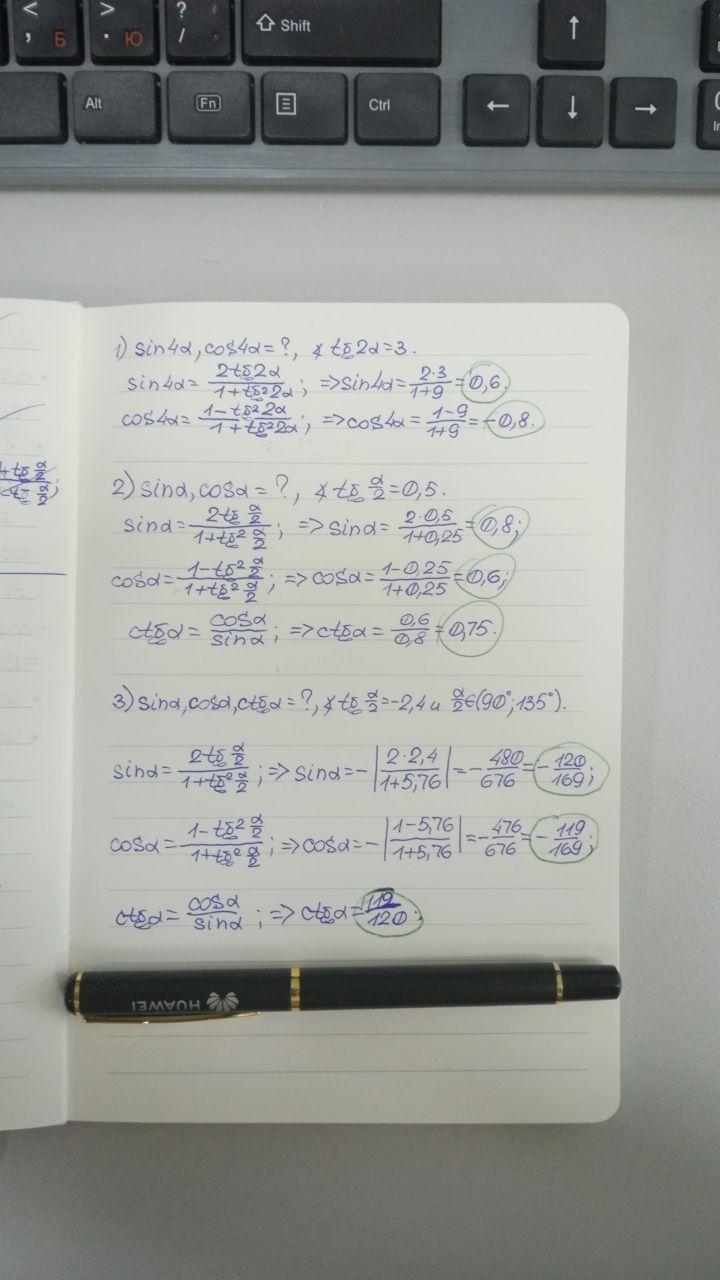 < , Б
> . Ю
? / .
Shift
↑
Alt
Fn
Ctrl
←
↓
→
1) sin4α, cos4α = ?, ∡ tg2α = 3.
sin4α = 2·tg2α / 1+tg²2α ; => sin4α = 2·3 / 1+9 = 0,6.
cos4α = 1-tg²2α / 1+tg²2α ; => cos4α = 1-9 / 1+9 = -0,8.
2) sinα, cosα = ?, ∡ tg α/2 = 0,5.
sinα = 2tg α/2 / 1+tg² α/2 ; => sinα = 2·0,5 / 1+0,25 = 0,8;
cosα = 1-tg² α/2 / 1+tg² α/2 ; => cosα = 1-0,25 / 1+0,25 = 0,6;
ctgα = cosα / sinα ; => ctgα = 0,6 / 0,8 = 0,75.
3) sinα, cosα, ctgα = ?, ∡ tg α/2 = -2,4 и α/2 ∈ (90°; 135°).
sinα = 2tg α/2 / 1+tg² α/2 ; => sinα = -| 2·2,4 / 1+5,76 | = - 480/676 = - 120/169;
cosα = 1-tg² α/2 / 1+tg² α/2 ; => cosα = -| 1-5,76 / 1+5,76 | = - 476/676 = - 119/169;
ctgα = cosα / sinα ; => ctgα = 119/120.
HUAWEI